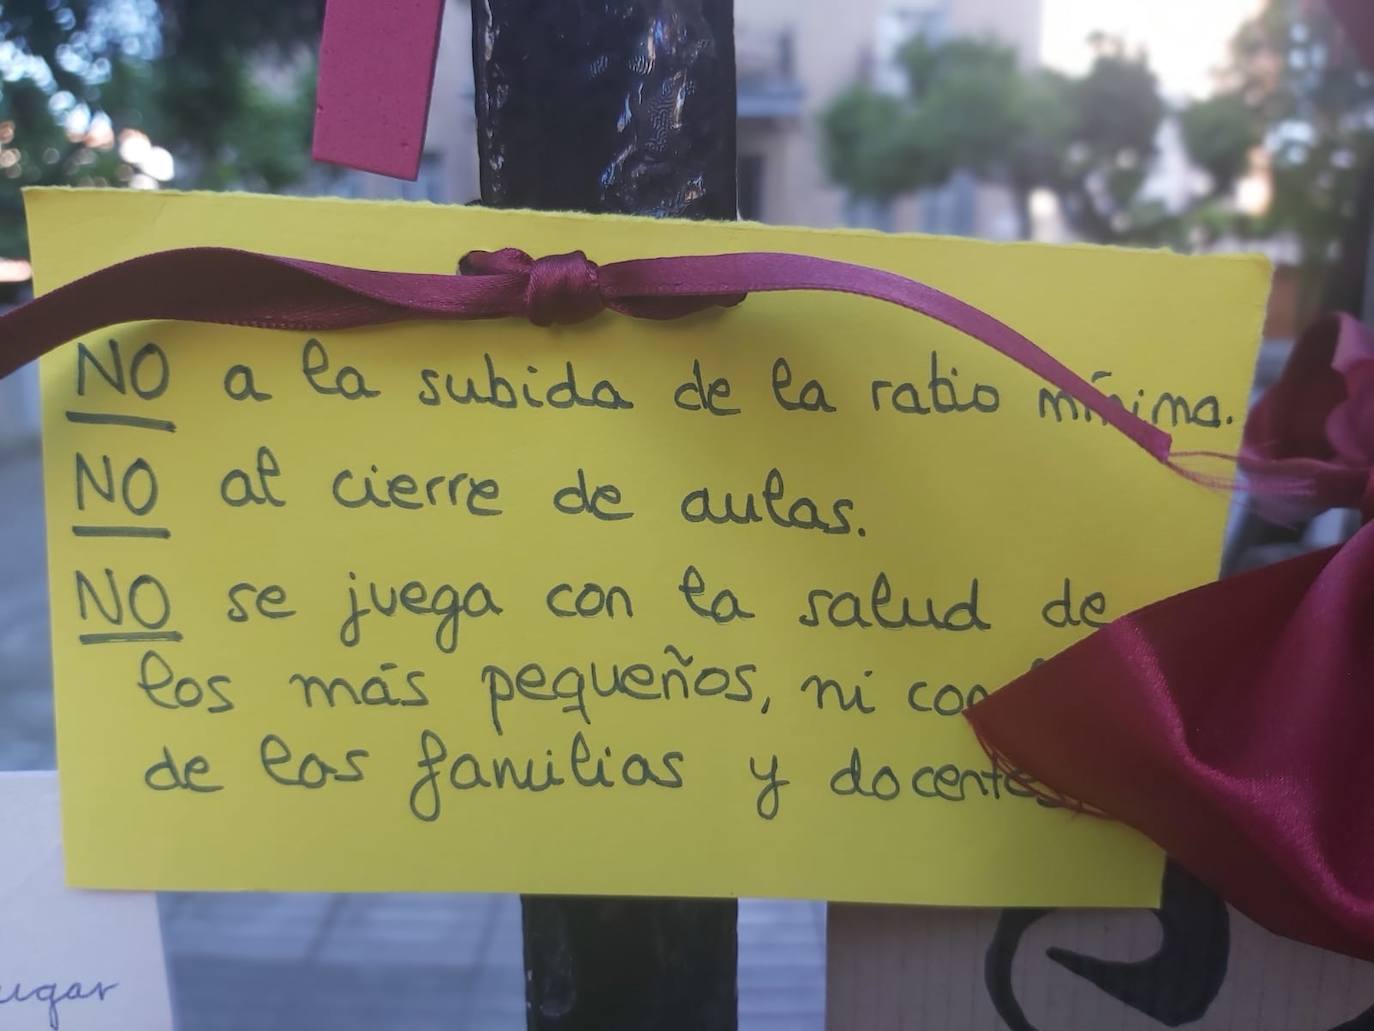 NO a la subida de la ratio mínima.
NO al cierre de aulas.
NO se juega con la salud de
los más pequeños, ni con
de las familias y docentes
ugar